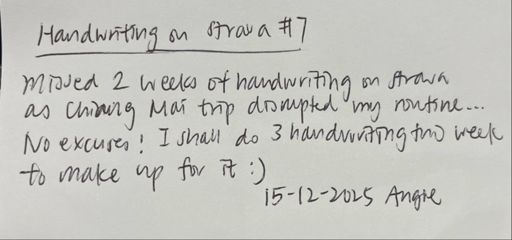 Handwriting on Strava #7
Missed 2 weeks of handwriting on Strava
as Chiang Mai trip disrupted my routine...
No excuses! I shall do 3 handwriting this week
to make up for it :)
15-12-2025 Angie